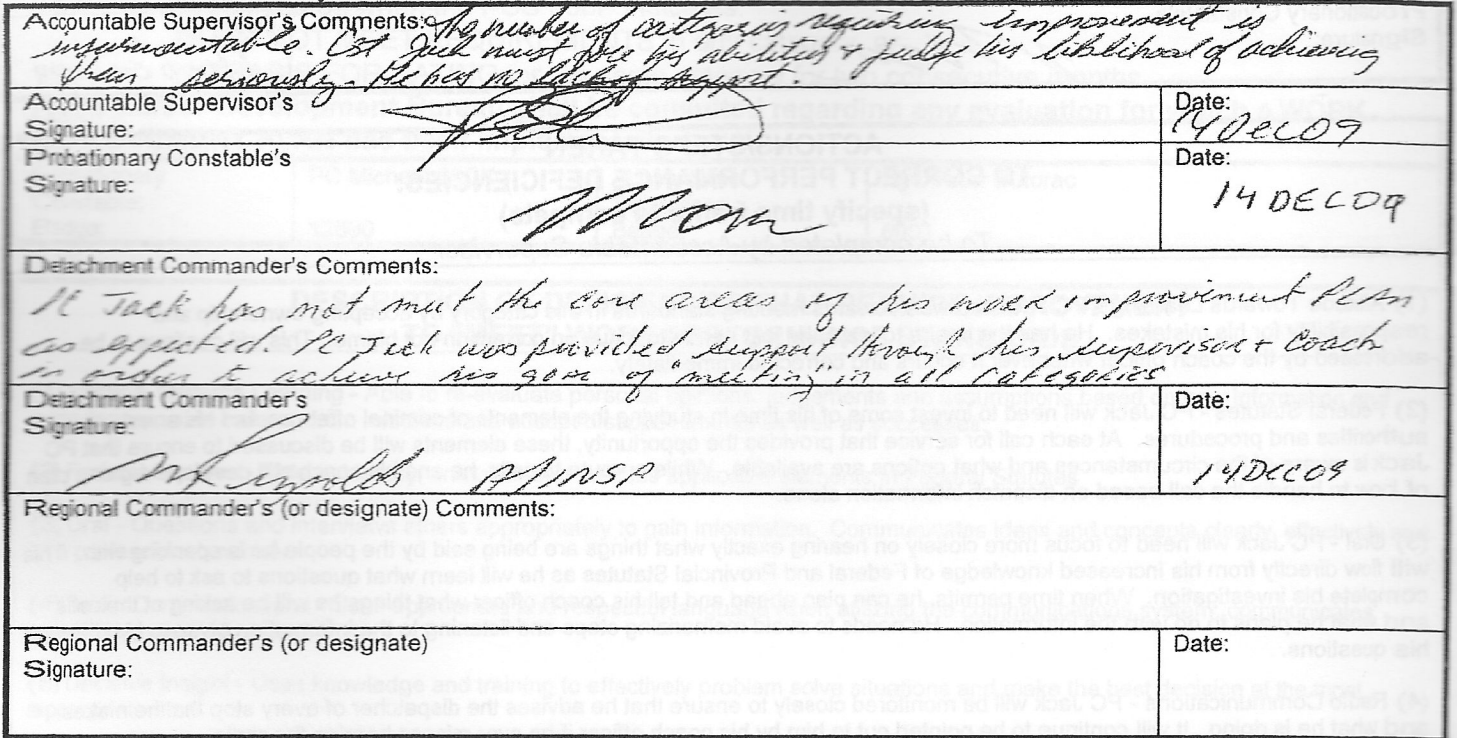 Accountable Supervisor's Comments: The number of categories requiring improvement is
insurmountable. Cst Jack must give his abilities & judge his likelihood of achieving
them seriously. He has no lack of support.
Accountable Supervisor's
Signature:
Date:
14DEC09
Probationary Constable's
Signature:
Date:
14 DEC09
Detachment Commander's Comments:
PC Jack has not met the core areas of his work improvement plan
as expected. PC Jack was provided support through his supervisor & coach
in order to achieve his goal of "meeting" in all categories
Detachment Commander's
Signature:
Date:
14DEC09
Regional Commander's (or designate) Comments:
Regional Commander's (or designate)
Signature:
Date: